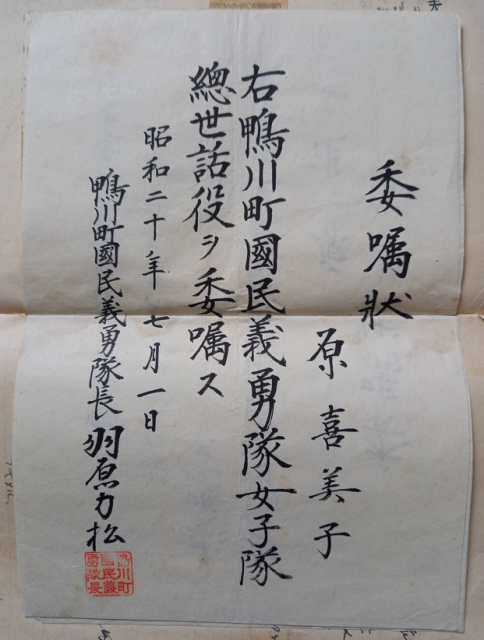 委嘱狀
原喜美子
右鴨川町國民義勇隊女子隊
總世話役ヲ委嘱ス
昭和二十年七月一日
鴨川町國民義勇隊長 羽原力松
鴨川町
國民義
勇隊長